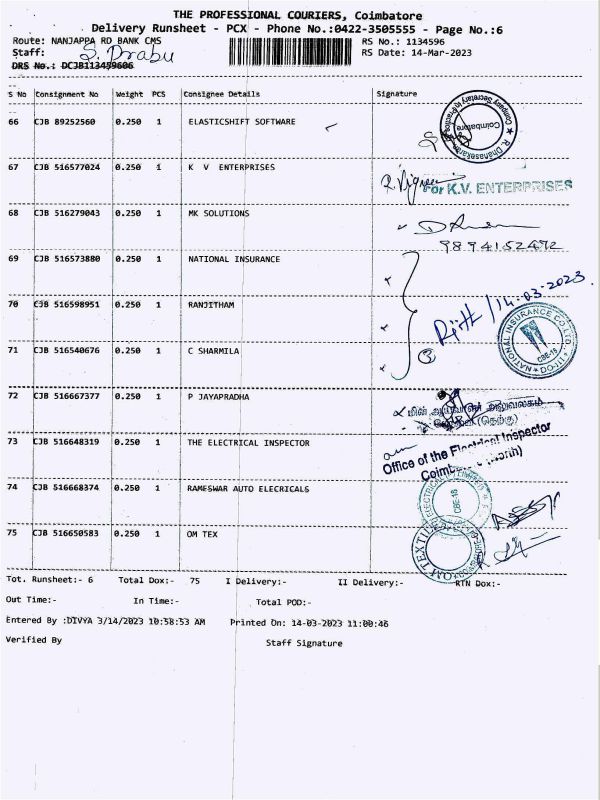 THE PROFESSIONAL COURIERS, Coimbatore
Delivery Runsheet - PCX - Phone No.:0422-3505555 - Page No.:6
Route: NANJAPPA RD BANK CMS RS No.: 1134596
Staff: S. Prabu RS Date: 14-Mar-2023
DRS No.: DCJB113459606
S No Consignment No Weight PCS Consignee Details Signature
66 CJB 89252560 0.250 1 ELASTICSHIFT SOFTWARE
R. Dhanasekaran Company Secretary In Practice Coimbatore
67 CJB 516577024 0.250 1 K V ENTERPRISES
For K.V. ENTERPRISES
68 CJB 516279043 0.250 1 MK SOLUTIONS
9894152492
69 CJB 516573880 0.250 1 NATIONAL INSURANCE
14-03-2023
70 CJB 516598951 0.250 1 RANJITHAM
NATIONAL INSURANCE CO.LTD. CBE-18
71 CJB 516540676 0.250 1 C SHARMILA
3
72 CJB 516667377 0.250 1 P JAYAPRADHA
மின் ஆய்வாளர் அலுவலகம்
(தெற்கு)
73 CJB 516648319 0.250 1 THE ELECTRICAL INSPECTOR
Office of the Electrical Inspector
(North)
74 CJB 516668374 0.250 1 RAMESWAR AUTO ELECRICALS
CBE-18
75 CJB 516650583 0.250 1 OM TEX
OM TEXTILE
Tot. Runsheet:- 6 Total Dox:- 75 I Delivery:- II Delivery:- RTN Dox:-
Out Time:- In Time:- Total POD:-
Entered By :DIVYA 3/14/2023 10:58:53 AM Printed On: 14-03-2023 11:00:46
Verified By Staff Signature